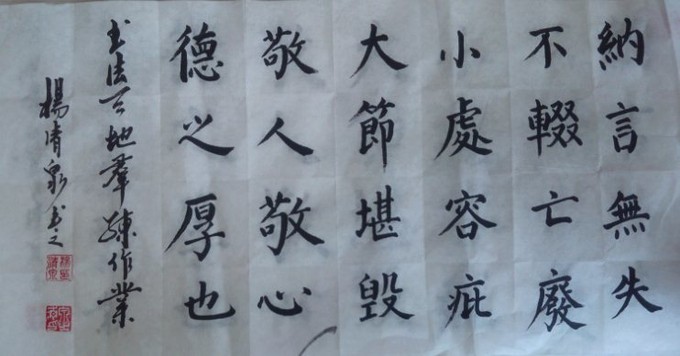 納言無失
不輟亡廢
小處容疵
大節堪毀
敬人敬心
德之厚也
书法天地群练作業
楊清泉书之